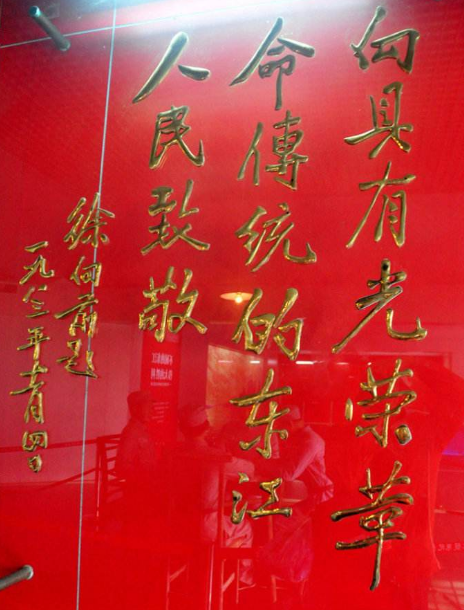 向具有光荣革
命傳统的东江
人民致敬
徐向前题
一九八三年月四日